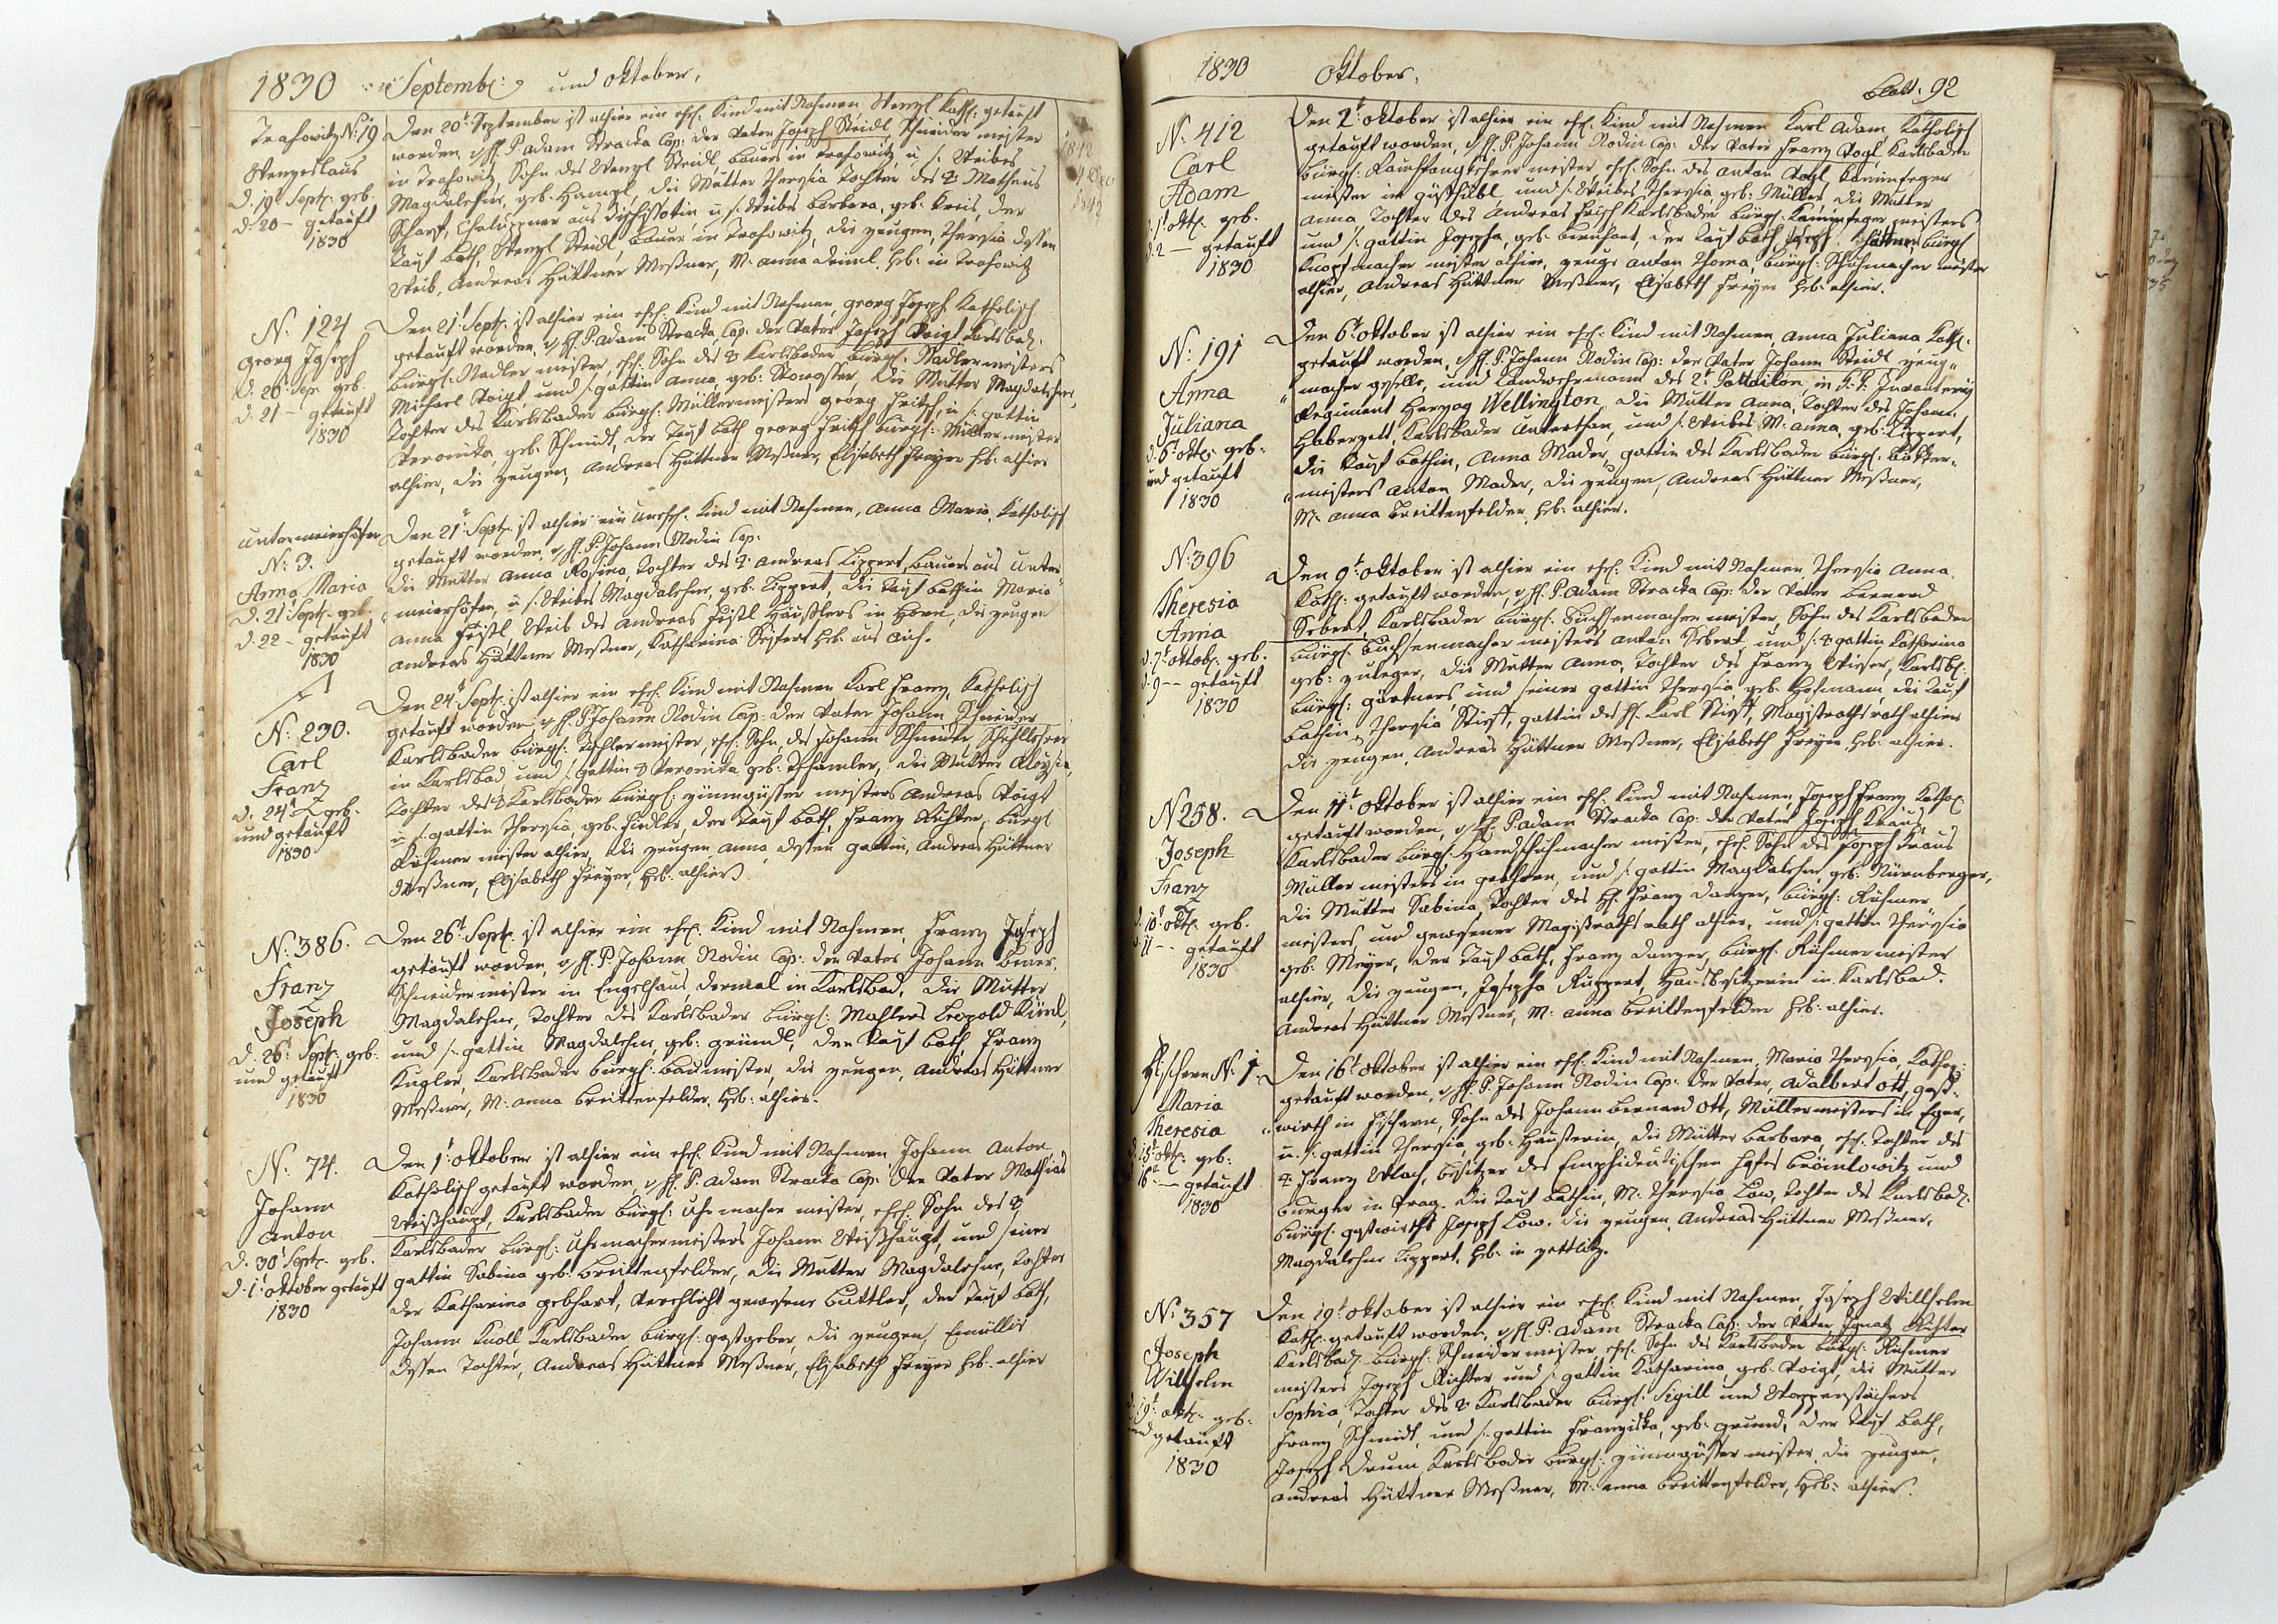 1830 Septemb: und Oktober,
Trasowitz N: 19
Wenzeslaus
d. 19t Septr. geb.
d. 20 – getauft
1830
Den 20t September ist alhier ein ehel. Kind mit Nahmen Wenzl Kathl: getauft
worden, v H. P. Adam Stracka Cap: der Vater Joseph Steidl, Schneider meister
in Trasowitz, Sohn des Wenzl Steidl, bauers in Trasowitz u s. Weibes
Magdalehne, geb. Hampl, die Mutter Theresia Tochter des Matheus
Scharf, Chaluppner aus u s. Weibes Barbara, geb. Kreis, der
Tauf bath, Wenzl Steidl, bauer in Trasowitz, die zeugen, Theresia dessen
Weib, Andreas Hüttner Meßner, M. Anna heb. in Trasowitz
1842
1842
N. 124
Georg Joseph
d. 20t Sep. geb.
d. 21 – getauft
1830
Den 21t Septr. ist alhier ein ehel. Kind mit Nahmen, Georg Joseph Katholisch
getauft worden, v H. P. Adam Stracka, Cap: der Vater Joseph Voigt Karlsbad.
bürgl. Nadler meister, ehel. Sohn des Karlsbader bürgl. Nadlermeisters
Michael Voigt, und s. gattin Anna, geb: die Mutter Magdalehne,
Tochter des Karlsbader bürgl: Müllermeisters Georg Fritsch, u s. gattin
Veronika, geb. Schmidt, der Tauf bath Georg Fritsch bürgl: Müllermeister
alhier, die zeugen, Andreas Hüttner Meßner, Elisabeth Freyer heb: alhier
Untermeierhöfen
N: 3.
Anna Maria
d. 21t Septr. geb.
d. 22 – getauft
1830
Den 21t Septr. ist alhier ein unehel. Kind mit Nahmen, Anna Maria, Katholisch
getauft worden, v H. P. Johann Nodin Cap.
die Mutter Anna Rosina, Tochter des Andreas Lippert, bauers aus Unter
meierhöfen, u s. Weibes Magdalehne, geb. Lippert, die Tauf bathin Maria
Anna Weib des Andreas Häußlers in Horn, die zeugen
Andreas Hüttner Meßner, Katharina Seifert heb. aus Aich.
N: 230.
Carl
Franz
d. 24t – geb.
und getauft
1830
Den 24t Septr. ist alhier ein ehel. Kind mit Nahmen Karl Franz, Katholisch
getauft worden, v H. P. Johann Nodin Cap: der Vater Johann Schneider
Karlsbader bürgl: Tischlermeister, ehel. Sohn des Johann Schneider, Schullehrer
in Karlsbad und s. gattin Veronika geb. die Mutter Aloysia,
Tochter des Karlsbader bürgl: zinngüßer meisters Andreas Voigt
u s. gattin Theresia, geb. Fiedler, der Tauf bath, Franz Richter, bürgl
Rihmer meister alhier, die zeugen Anna dessen gattin, Andreas Hüttner
Meßner, Elisabeth Freyer, heb: alhier
N: 386.
Franz
Joseph
d. 26t Septr. geb.
und getauft
1830
Den 26t Septr. ist alhier ein ehel. Kind mit Nahmen, Franz Joseph
getauft worden, v H. P. Johann Nodin Cap: der Vater Johann
Schneidermeister in Engelhaus, dermal in Karlsbad, die Mutter
Magdalehne, Tochter des Karlsbader bürgl: Mahlers Leopold
und s. gattin Magdalehne, geb: gründl, der Tauf bath Franz
Kugler, Karlsbader bürgl: baumeister, die zeugen, Andreas Hüttner
Meßner, M: Anna Breittenfelder, heb: alhier.
N: 74.
Johann
Anton
d. 30t Septr. geb.
d. 1t Oktober getauft
1830
Den 1t Oktober ist alhier ein ehel. Kind mit Nahmen Johann Anton
Katholisch getauft worden, v H. P. Adam Stracka Cap: der Vater Mathias
Weißhaupt, Karlsbader bürgl: Uhrmacher meister, ehel. Sohn des
Karlsbader bürgl: Uhrmachermeisters Johann Weißhaupt, und seiner
gattin Sabina geb: Breittenfelder, die Mutter Magdalehne, Tochter
der Katharina gebhart, verehlicht gewesene Buttler, der Tauf bath,
Johann Knoll Karlsbader bürgl: gastgeber, die zeugen,
dessen Tochter, Andreas Hüttner Meßner, Elisabeth Freyer heb: alhier
1830 Oktober, Blatt: 92
N: 412
Carl
Adam
1t Oktr. geb.
d. 2 – getauft
1830
Den 2t Oktober ist alhier ein ehel. Kind mit Nahmen Karl Adam, Katholisch
getauft worden, v H. P. Johann Nodin Cap: der Vater Franz Vogl, Karlsbader
bürgl: Rauchfangkehrer meister, ehel. Sohn des Anton Vogl Kaminfeger
meister in gisshübl und s. Weibes Theresia geb: Müller, die Mutter
Anna, Tochter des Andreas Karlsbader bürgl: Kaminfeger meisters
und s. gattin Josepha, geb. der Tauf bath, Joseph Hüttner bürgl
Knopfmacher meister alhier, zeuge Anton Thoma, bürgl: Schuhmacher meister
alhier, Andreas Hüttner Meßner, Elisabeth Freyer heb: alhier.
N: 191
Anna
Juliana
d. 6t Oktr. geb.
und getauft
1830
Den 6t Oktober ist alhier ein ehel. Kind mit Nahmen, Anna Juliana Kathl.
getauft worden, v H. P. Johann Nodin Cap: der Vater Johann Steidl zeug
macher geselle, und Landwehrmann des 2t Battailon, in K. K. Invanterii
Regiment Herzog Wellington, die Mutter Anna, Tochter des Johann
Haberzett, Karlsbader Unterthan, und s. Weibes M: Anna, geb. Lippert,
die Tauf bathin, Anna Mader, gattin des Karlsbader bürgl. bäcker
meisters Anton Mader, die zeugen, Andreas Hüttner Meßner,
M: Anna Breittenfelder, heb: alhier.
N: 396
Theresia
Anna
d. 7t Oktob. geb.
d. 9 – getauft
1830
Den 9t Oktober ist alhier ein ehel. Kind mit Nahmen Theresia Anna
Kathl: getauft worden, v H. P. Adam Stracka Cap: der Vater Bernard
Sebert, Karlsbader bürgl. büchsenmacher meister, Sohn des Karlsbader
bürgl. büchsenmacher meisters Anton Sebert, und s. gattin Katharina
geb: zuleger, die Mutter Anna, Tochter des Franz Wieser, Karlsb:
bürgl: gärtners, und seiner gattin Theresia, geb. Hofmann, die Tauf
bathin Theresia Stieff, gattin des H. Karl Stieff, Magistrathsrath alhier
die zeugen, Andreas Hüttner Meßner, Elisabeth Freyer heb: alhier.
N 258.
Joseph
Franz
d. 10t Oktr. geb.
11 – getauft
1830
Den 11t Oktober ist alhier ein ehel. Kind mit Nahmen, Joseph Franz, Kathol.
getauft worden, v H. P. Adam Stracka Cap: der Vater Joseph Kraus
Karlsbader bürgl. Handschuhmacher meister, ehel. Sohn des Joseph Kraus
Müller meisters in und s. gattin Magdalehne, geb: Nürnberger,
die Mutter Sabina, Tochter des H. Franz Danzer, bürgl: Rihmer
meisters, und gewesener Magistraths rath alhier, und s. gattin Theresia
geb: Meyer, der Tauf bath, Franz Danzer, bürgl: Rihmermeister
alhier, die zeugen, Josepha Ruppert, Hausbesitzerin in Karlsbad.
Andreas Hüttner Meßner, M: Anna Breittenfelder heb: alhier.
Fischern N: 1.
Maria
Theresia
d. 15t Oktr. geb.
16t – getauft
1830
Den 16t Oktober ist alhier ein ehel. Kind mit Nahmen, Maria Theresia, Kathol:
getauft worden, v H. P. Johann Nodin Cap: der Vater, Adalbert Ott, gast
wirth in Fischern, Sohn des Johann Bernard Ott, Müllermeisters in Eger,
u. s. gattin Theresia, geb: die Mutter Barbara, ehel. Tochter des
Franz Wlach, besitzer des Emphideutischen Hofes und
bürger in Prag. die Tauf bathin, M: Theresia Löw, Tochter des Karlsbad:
bürgl: gastwirths Joseph Löw, die zeugen Andreas Hüttner Meßner,
Magdalehne Lippert, heb: in zettlitz.
N: 357
Joseph
Wilhelm
19t Oktr. geb:
und getauft
1830
Den 19t Oktober ist alhier ein ehel. Kind mit Nahmen, Joseph Willhelm
Kathl: getauft worden, v H. P. Adam Stracka Cap: der Vater, Ignatz Richter
Karlsbad: bürgl: Schneidermeister ehel. Sohn des Karlsbader bürgl: Rihmer
meisters Joseph Richter und s. gattin Katharina, geb: Voigt, die Mutter
Sophia, Tochter des Karlsbader bürgl: Sigill und Wappenstächers
Franz Schmidt, und s. gattin Franziska, geb: grund, der Tauf bath,
Joseph Karlsbader bürgl: zinngüßer meister, die zeugen,
Andreas Hüttner Meßner, M: Anna Breittenfelder, heb: alhier.